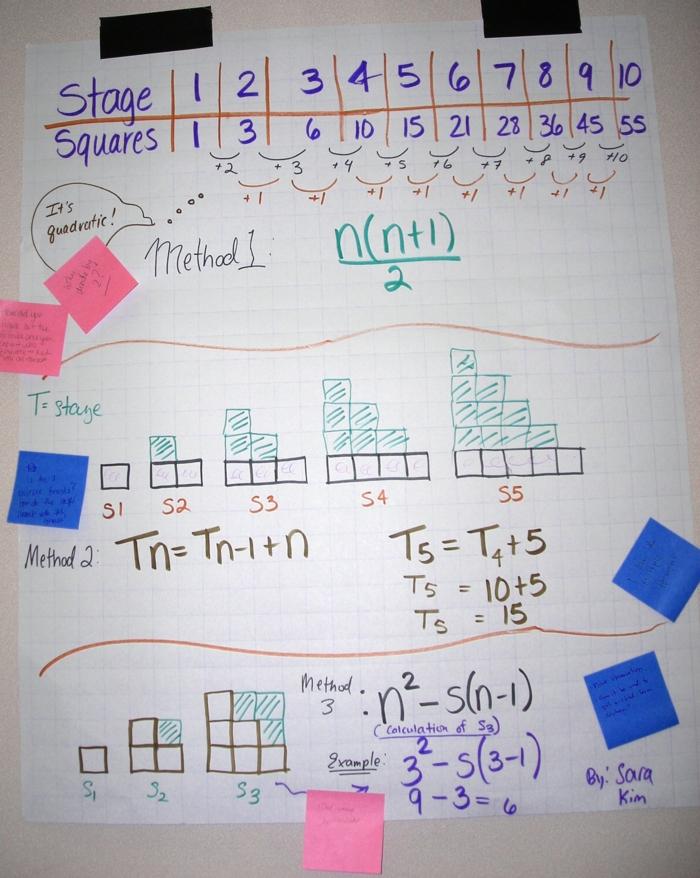 Stage 1 2 3 4 5 6 7 8 9 10
Squares 1 3 6 10 15 21 28 36 45 55
+2 +3 +4 +5 +6 +7 +8 +9 +10
+1 +1 +1 +1 +1 +1 +1 +1
It's
quadratic!
Method 1:
n(n+1)
2
why
divide by
2??
T= stage
S1 S2 S3 S4 S5
Method 2: Tn = Tn-1 + n
T5 = T4 + 5
T5 = 10+5
T5 = 15
Method
3 : n² - S(n-1)
(Calculation of S3)
Example: 3² - S(3-1)
9 - 3 = 6
S1 S2 S3
By: Sara
Kim